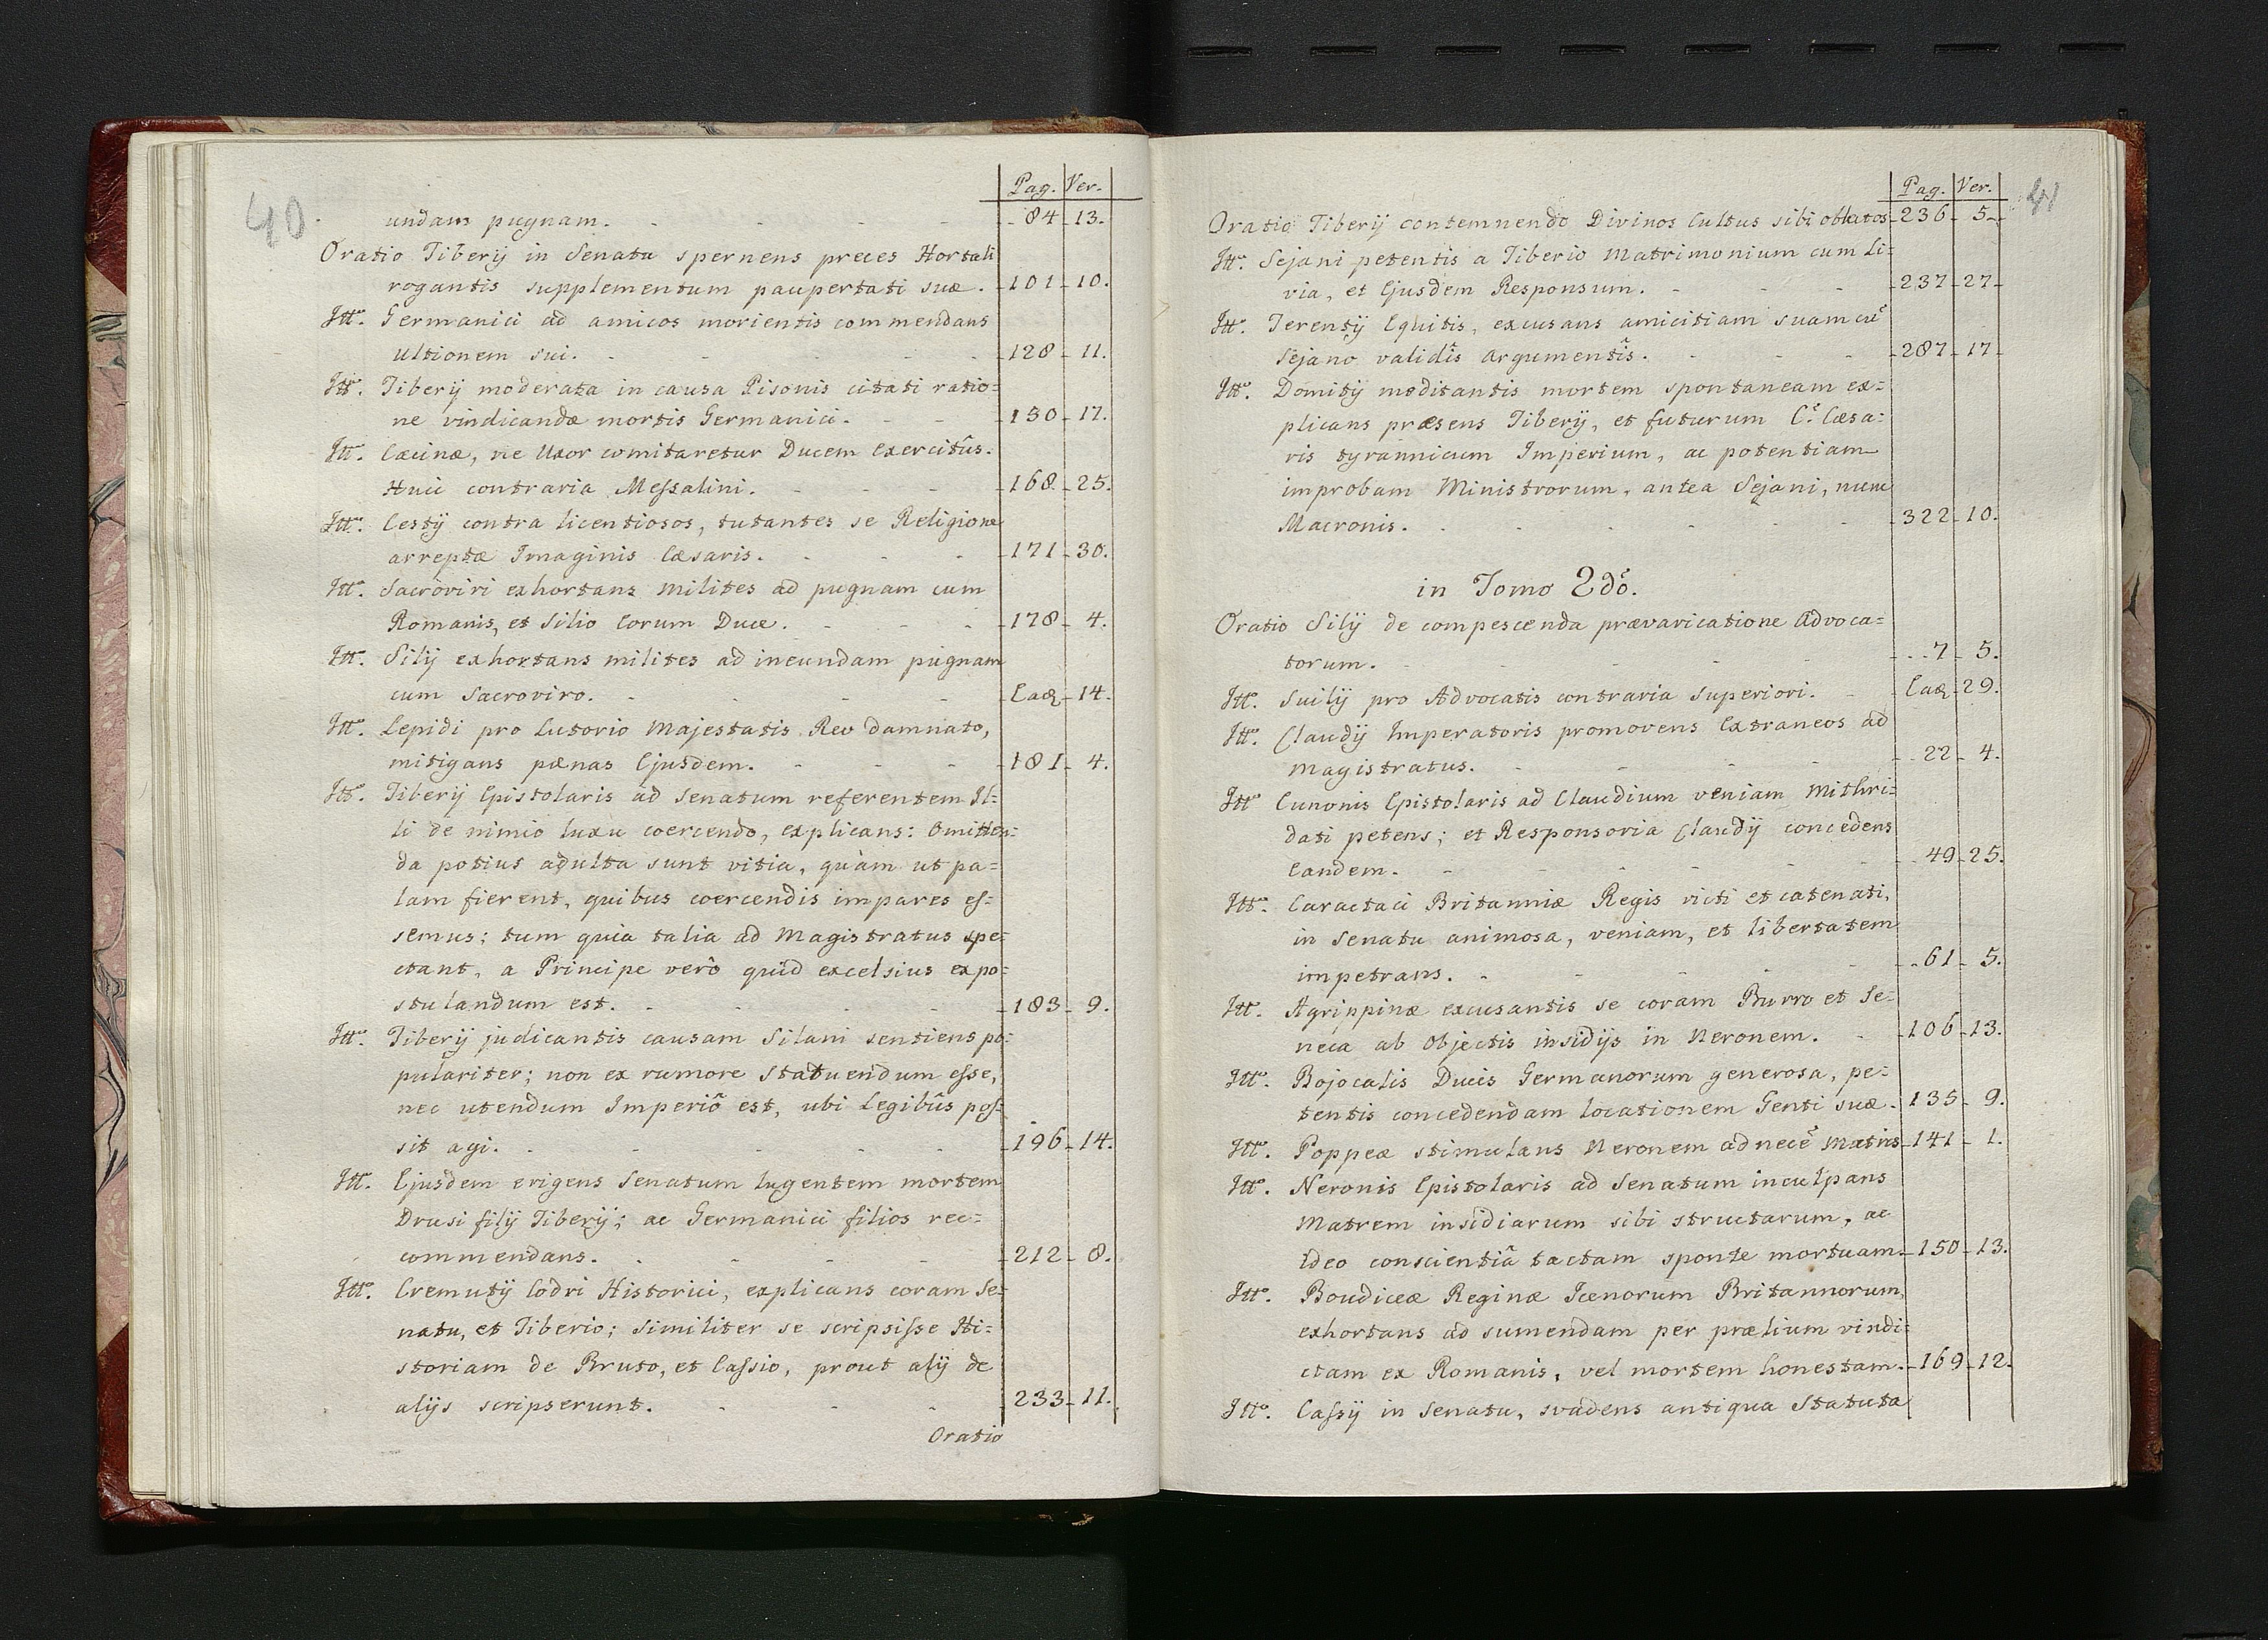 40
Pag. Ver.
undam pugnam. 84 13.
Oratio Tiberÿ in Senatu spernens preces Hortali
rogantis supplementum paupertati suæ. 101 10.
Ittō. Germanici ad amicos morientis commendans
Ultionem sui. 128 11.
Ittō. Tiberÿ moderata in causa Pisonis citati ratio=
ne vindicandæ mortis Germanici. 130 17.
Ittō. Cæcinæ, ne Uxor comitaretur Ducem Exercitûs.
Huic contraria Meſsalini. 168 25.
Ittō. Cestÿ contra licentiosos, tutantes se Religione
arreptæ Imaginis Cæsaris. 171 30.
Ittō. Sacroviri exhortans milites ad pugnam cum
Romanis, et Silio Eorum Duce. 178 4.
Ittō. Silÿ exhortans milites ad ineundam pugnam
cum Sacroviro. Eaq 14.
Ittō. Lepidi pro Lutorio Majestatis Reo damnato,
mitigans pænas Ejusdem. 181 4.
Ittō. Tiberÿ Epistolaris ad Senatum referentem Il=
li de nimio luxu coercendo, explicans: Omitten=
da potius adulta sunt vitia, quàm ut pa=
lam fierent, quibus coercendis impares eſ=
semus; tum quia talia ad Magistratus spe=
ctant, a Principe verò quid excelsius expo=
stulandum est. 183 9.
Ittō. Tiberÿ judicantis causam Silani sentiens po=
pulariter; non ex rumore statuendum eſse,
nec utendum Imperiô est, ubi Legibûs poſ=
sit agi. 196 14.
Ittō. Ejusdem erigens Senatum lugentem mortem
Drusi filÿ Tiberÿ; ac Germanici filios rec=
commendans. 212 8.
Ittō. Cremutÿ Codri Historici, explicans coram Se=
natu, et Tiberio; similiter se scripsiſse Hi=
storiam de Bruto, et Caſsio, prout alÿ de
alÿs scripserunt. 233 11.
Oratio
41
Pag. Ver.
Oratio Tiberÿ contemnendo Divinos Cultus sibi oblatos 236 5
Ittō. Sejani petentis a Tiberio Matrimonium cum Li=
via, et Ejusdem Responsum. 237 27
Ittō. Terentÿ Equitis, excusans amicitiam suam cũ
Sejano validîs argumentîs. 287 17
Ittō. Domitÿ meditantis mortem spontaneam ex=
plicans præsens Tiberÿ, et futurum C. Cæsa=
ris tyrannicum Imperium, ac potentiam
improbam Ministrorum, antea Sejani, nunc
Macronis. 322 10.
in Tomo 2dō.
Oratio Silÿ de compescenda prævaricatione Advoca=
torum. 7 5.
Ittō. Suilÿ pro Advocatis contraria superiori. Eaq 29.
Ittō. Claudÿ Imperatoris promovens Extraneos ad
Magistratus. 22 4.
Ittō Eunonis Epistolaris ad Claudium veniam Mithri=
dati petens; et Responsoria Claudÿ concedens
Eandem. 49 25.
Ittō. Caractaci Britanniæ Regis victi et catenati,
in Senatu animosa, veniam, et libertatem
impetrans. 61 5.
Ittō. Agrippinæ excusantis se coram Burro et Se=
neca ab objectis insidÿs in Neronem. 106 13.
Ittō. Bojocalis Ducis Germanorum generosa, pe=
tentis concedendam locationem Genti suæ. 135 9.
Ittō. Poppeæ stimulans Neronem ad necẽ Matris 141 1.
Ittō. Neronis Epistolaris ad Senatum inculpans
Matrem insidiarum sibi structarum, ac
ideo conscientiâ tactam sponte mortuam. 150 13.
Ittō. Boudiceæ Reginæ Icenorum Britannorum,
exhortans ad sumendam per prælium vindi=
ctam ex Romanis, vel mortem honestam. 169 12.
Ittō. Caſsÿ in Senatu, svadens antiqua Statuta